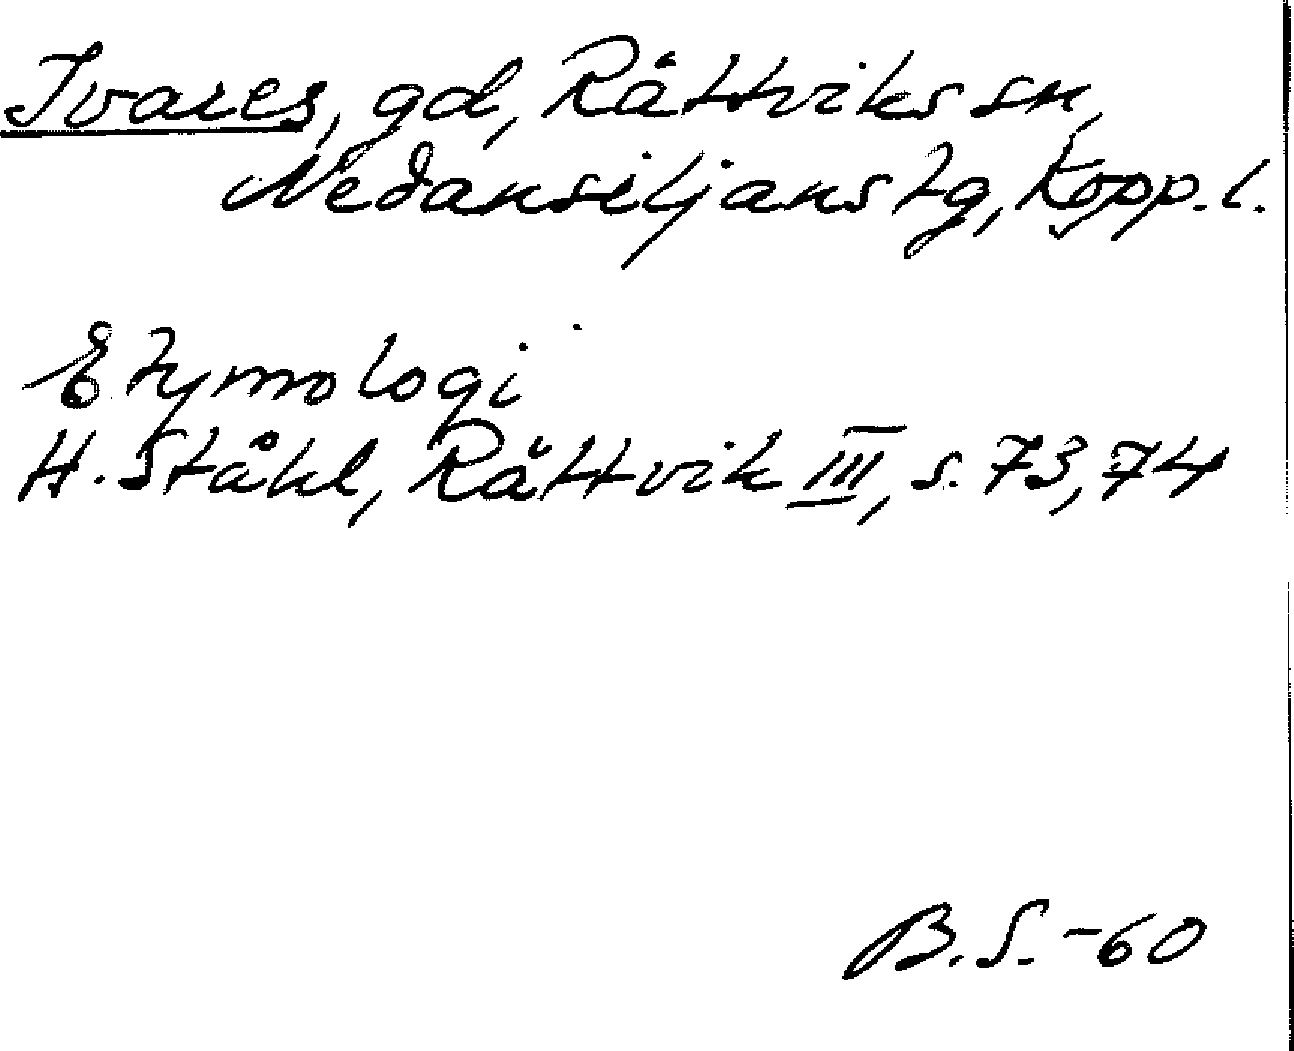 Ivares, gd, Rättviks sn,
Nedansiljans tg, Kopp. l.
Etymologi
H. Ståhl, Rättvik III, s. 73, 74
B.S. -60